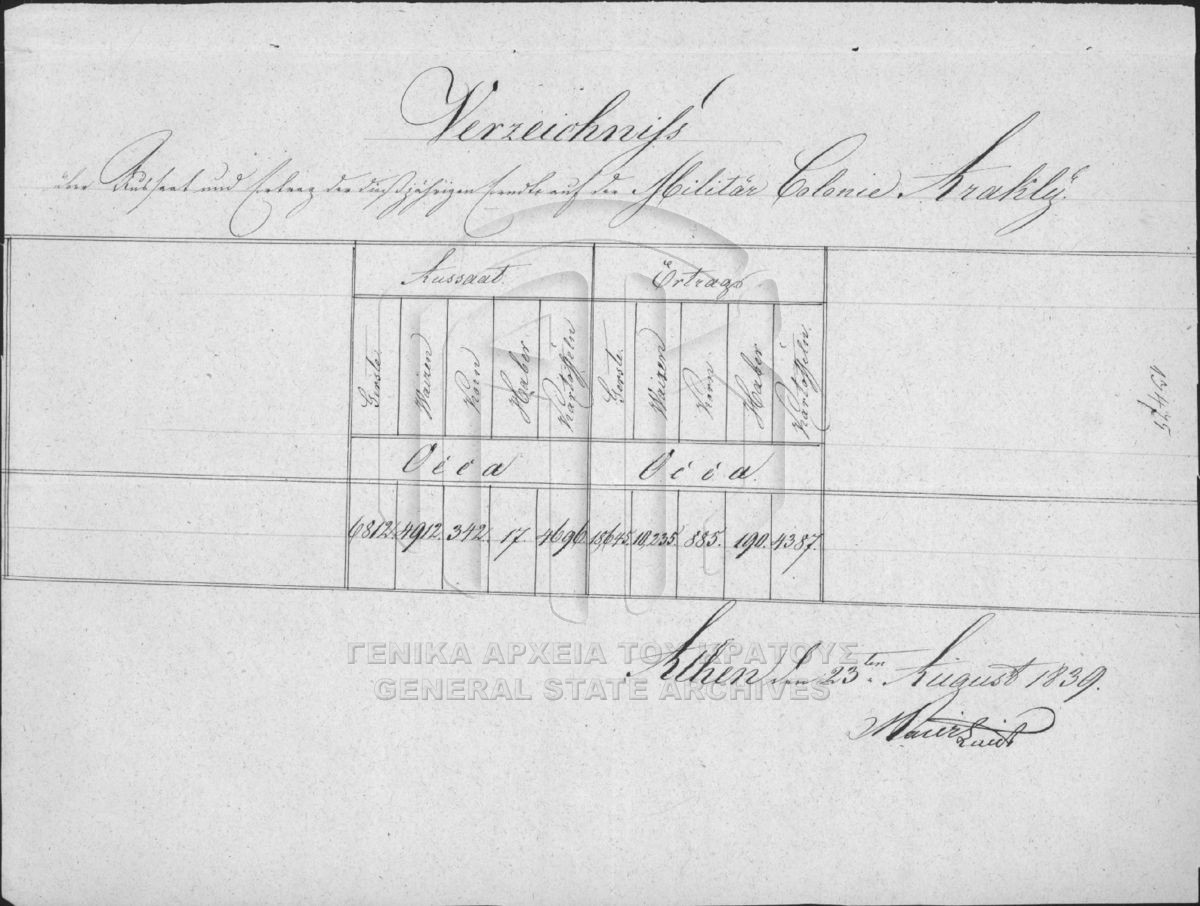 Verzeichniss
über Aussaat und Ertrag der dießjährigen Erndte auf der Militär Colonie Arakly.
Aussaat. Örtrags
Gerste. Waizen Korn Haber Kartoffeln Gerste. Waizen Korn Haber Kartoffeln.
Occa Occa.
6812. 4912. 342. 17. 4696. 18,645. 10,235. 885. 190. 4387.
Athen den 23ten August 1839.
Maier
ΓΕΝΙΚΑ ΑΡΧΕΙΑ ΤΟΥ ΚΡΑΤΟΥΣ
GENERAL STATE ARCHIVES